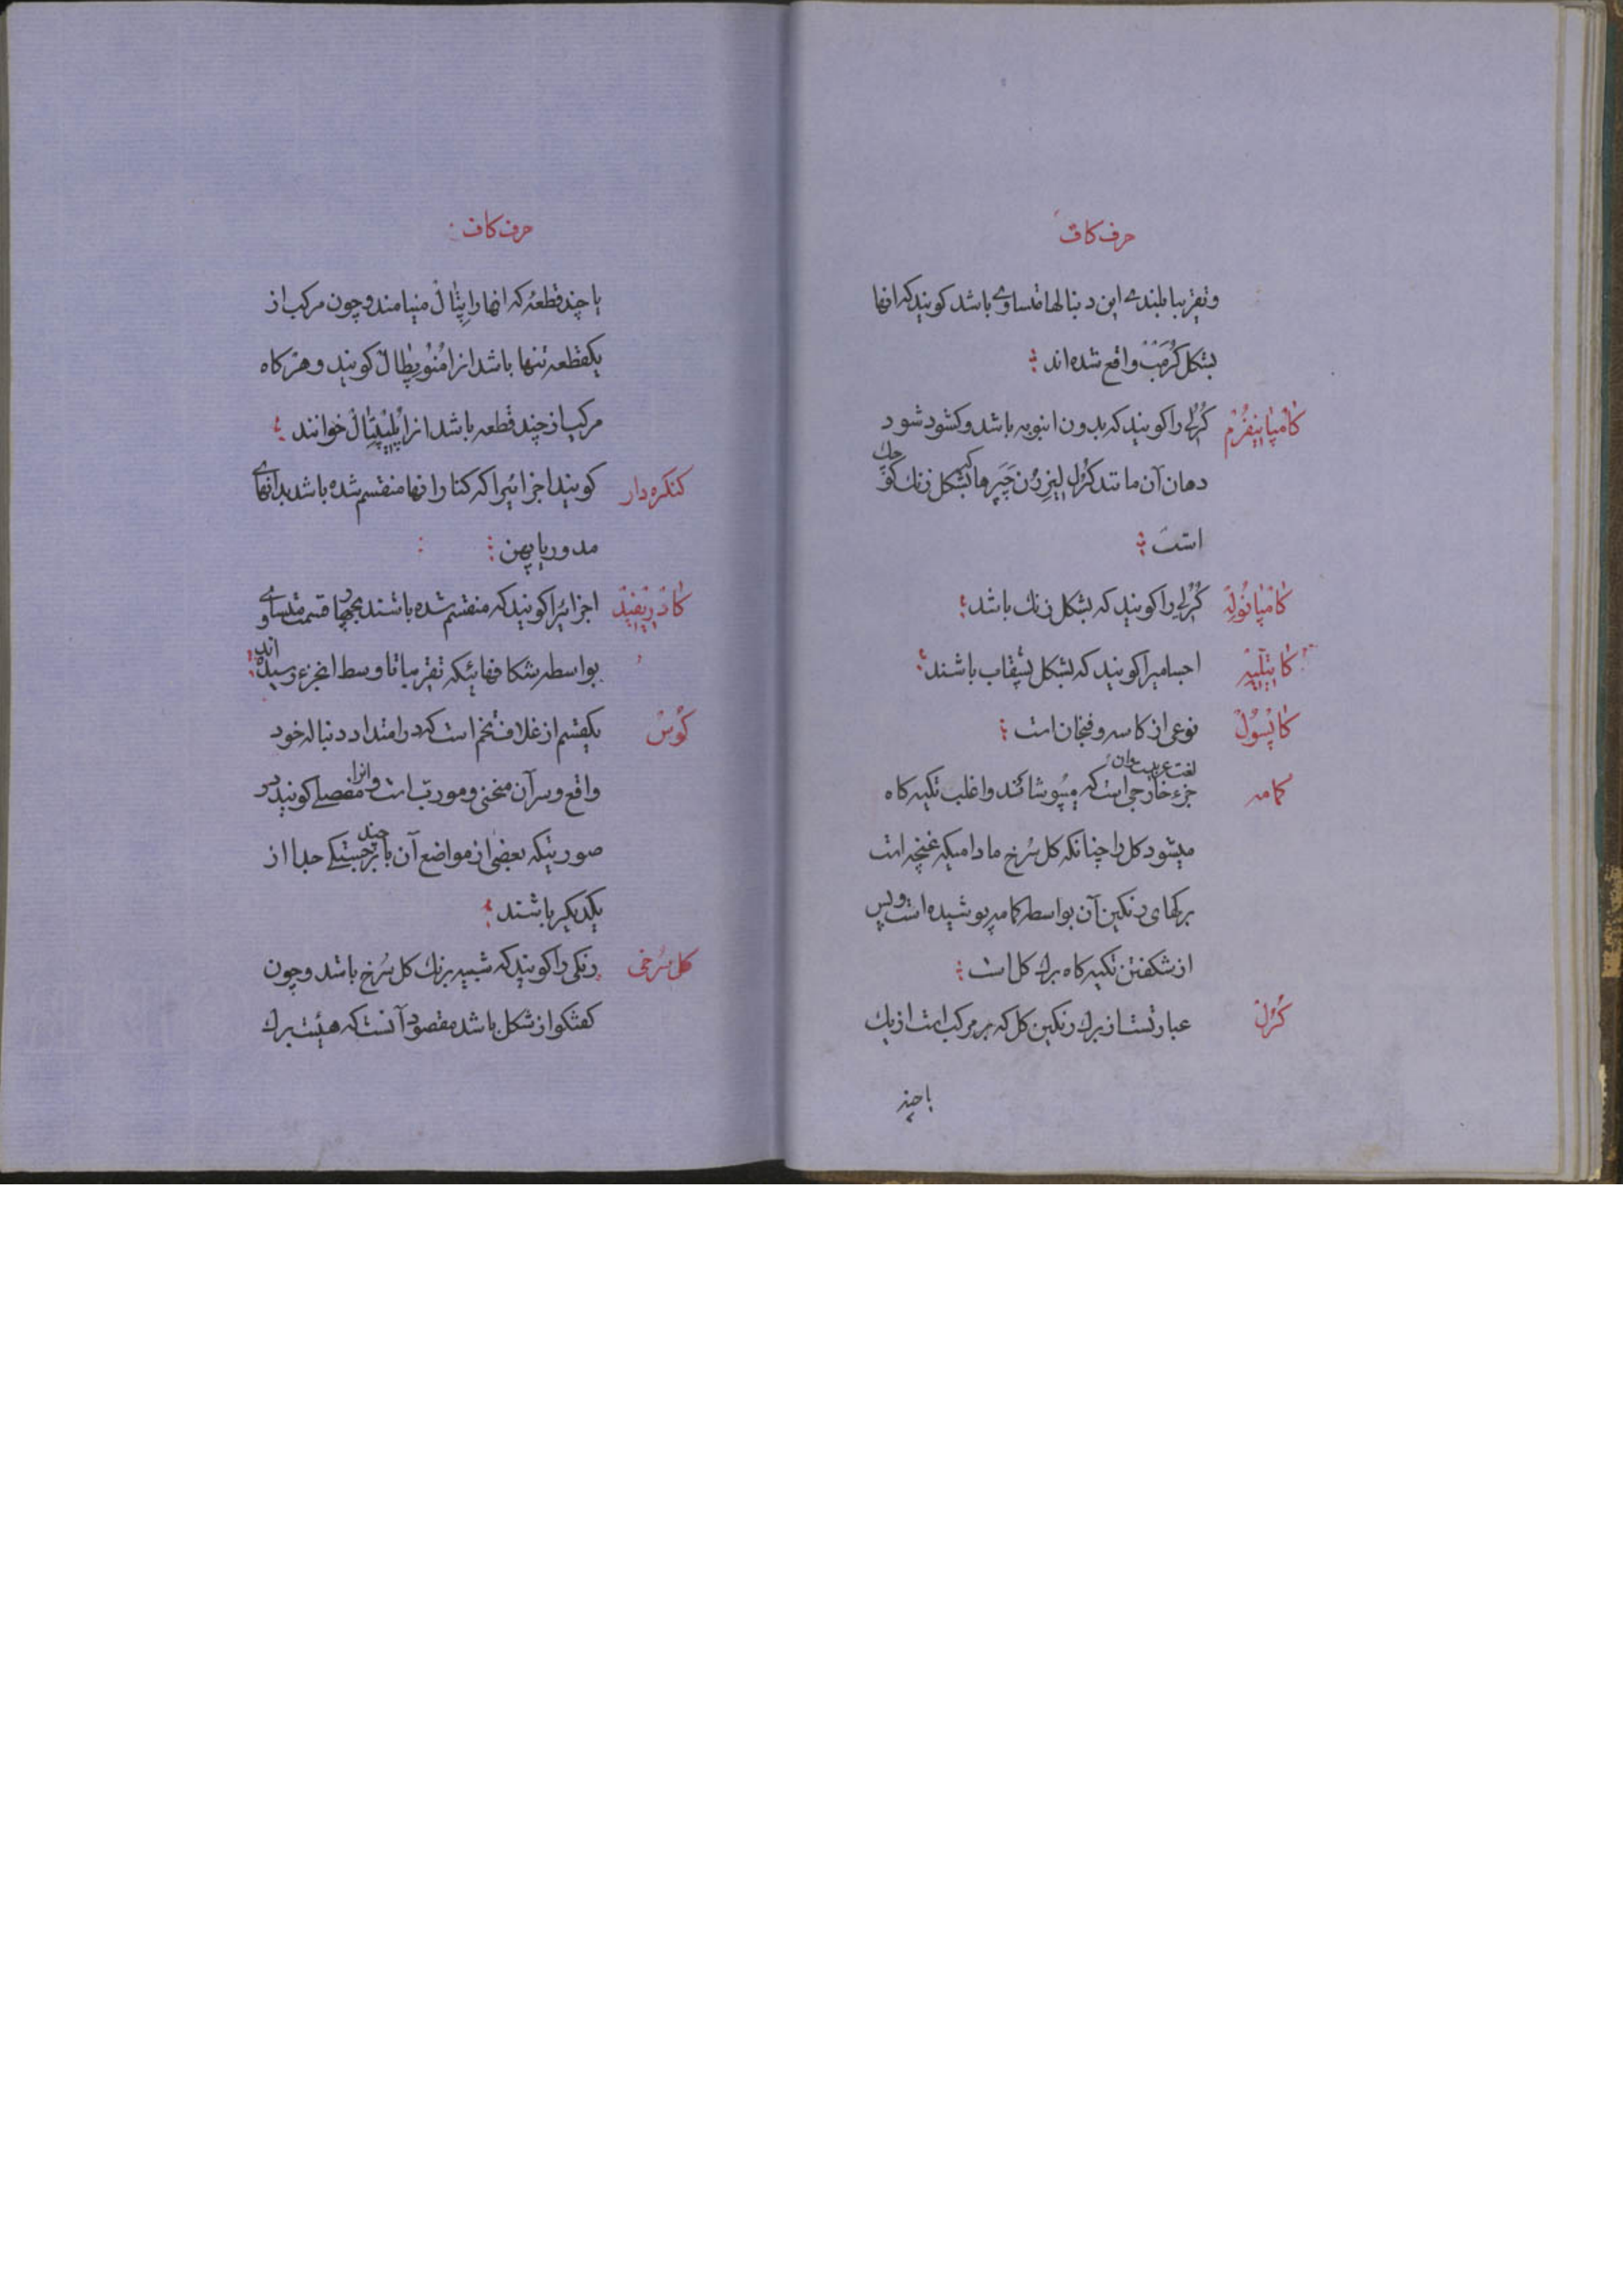 حرف کاف
وتقریبا بلندی این دنبالها متساوی باشد کویند که انها
بشکل کُرمَبْ واقع شده اند :
کامپانیفُرْم کُرُلی را کویند که بدون انبوبه باشد و کشود شود
دهان آن مانند کرُل لیزرُن چَپَرها که بشکل زنك کوچك
است :
کامپانُولِه کُرُلی را کویند که بشکل زنك باشد :
کاتیلیه اجسامیرا کویند که بشکل بشقاب باشند :
کاپسُول نوعی از کاسه و فنجان است :
کمامه لغت عربیست و آن جزء خارجی است که میپوشاند و اغلب تکیه کاه
میشود کل را چنانکه کل سُرخ مادامیکه غنچه است
برکهای رنکین آن بواسطه کمامه پوشیده است و پس
از شکفتن تکیه کاه برك کل است :
کُرُل عبارتست از برك رنکین کل که مرکب است از یك
یا چند
حرف کاف :
یا چند قطعهٔ که انها را پِتال مینامند و چون مرکب از
یکقطعه تنها باشد انرا مُنُوپِطال کویند و هرکاه
مرکب از چند قطعه باشد انرا پُلیپِتال خوانند :
کنکره دار کویند اجزائیرا که کنار انها منقسم شده باشد بدانهای
مدور یا پهن :
کادریفید اجزائیرا کویند که منقسم شده باشند بچهار قسمت متساوی
بواسطه شکافهائیکه تقریبا تا وسط انجزء رسیده اند :
کُوس یکقسم از غلاف تخم است که در امتداد دنباله خود
واقع و سر آن منحنی و مورب است و انرا مفصلی کویند در
صورتیکه بعضی از مواضع آن با برجستکی چند جدا از
یکدیکر باشند :
کل سُرخی رنکی را کویند که شبیه برنك کل سُرخ باشد و چون
کفتکو از شکل باشد مقصود آنست که هیئت برك